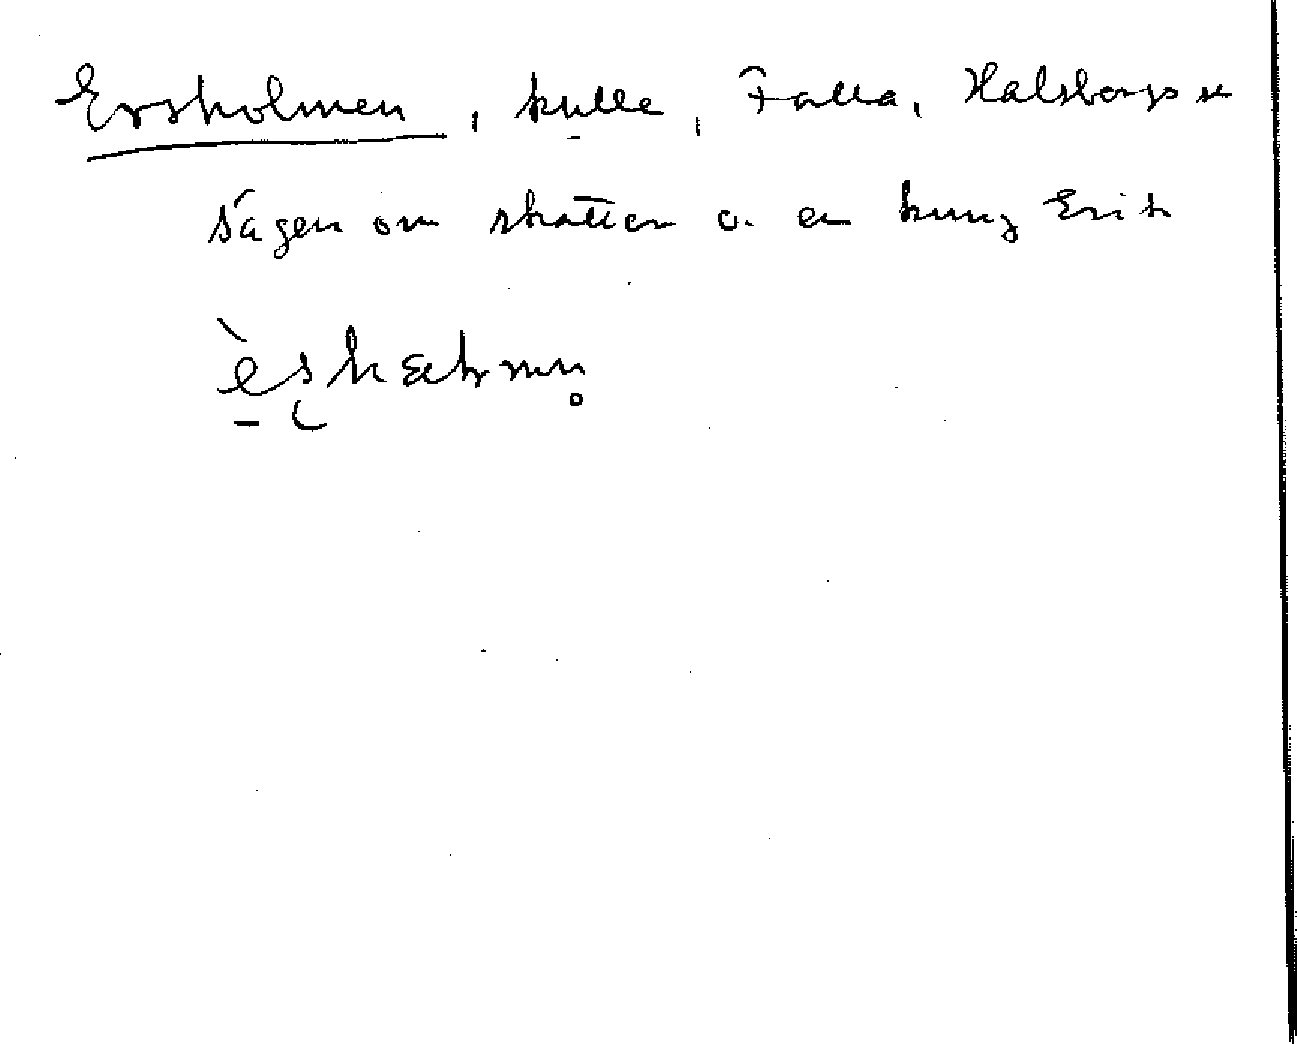 Ersholmen, kulle, Falla, Halsbergs sn
Sägen om skatten o. en kung Erik